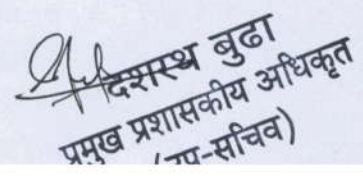 दशरथ बुढा
प्रमुख प्रशासकीय अधिकृत
(उप-सचिव)